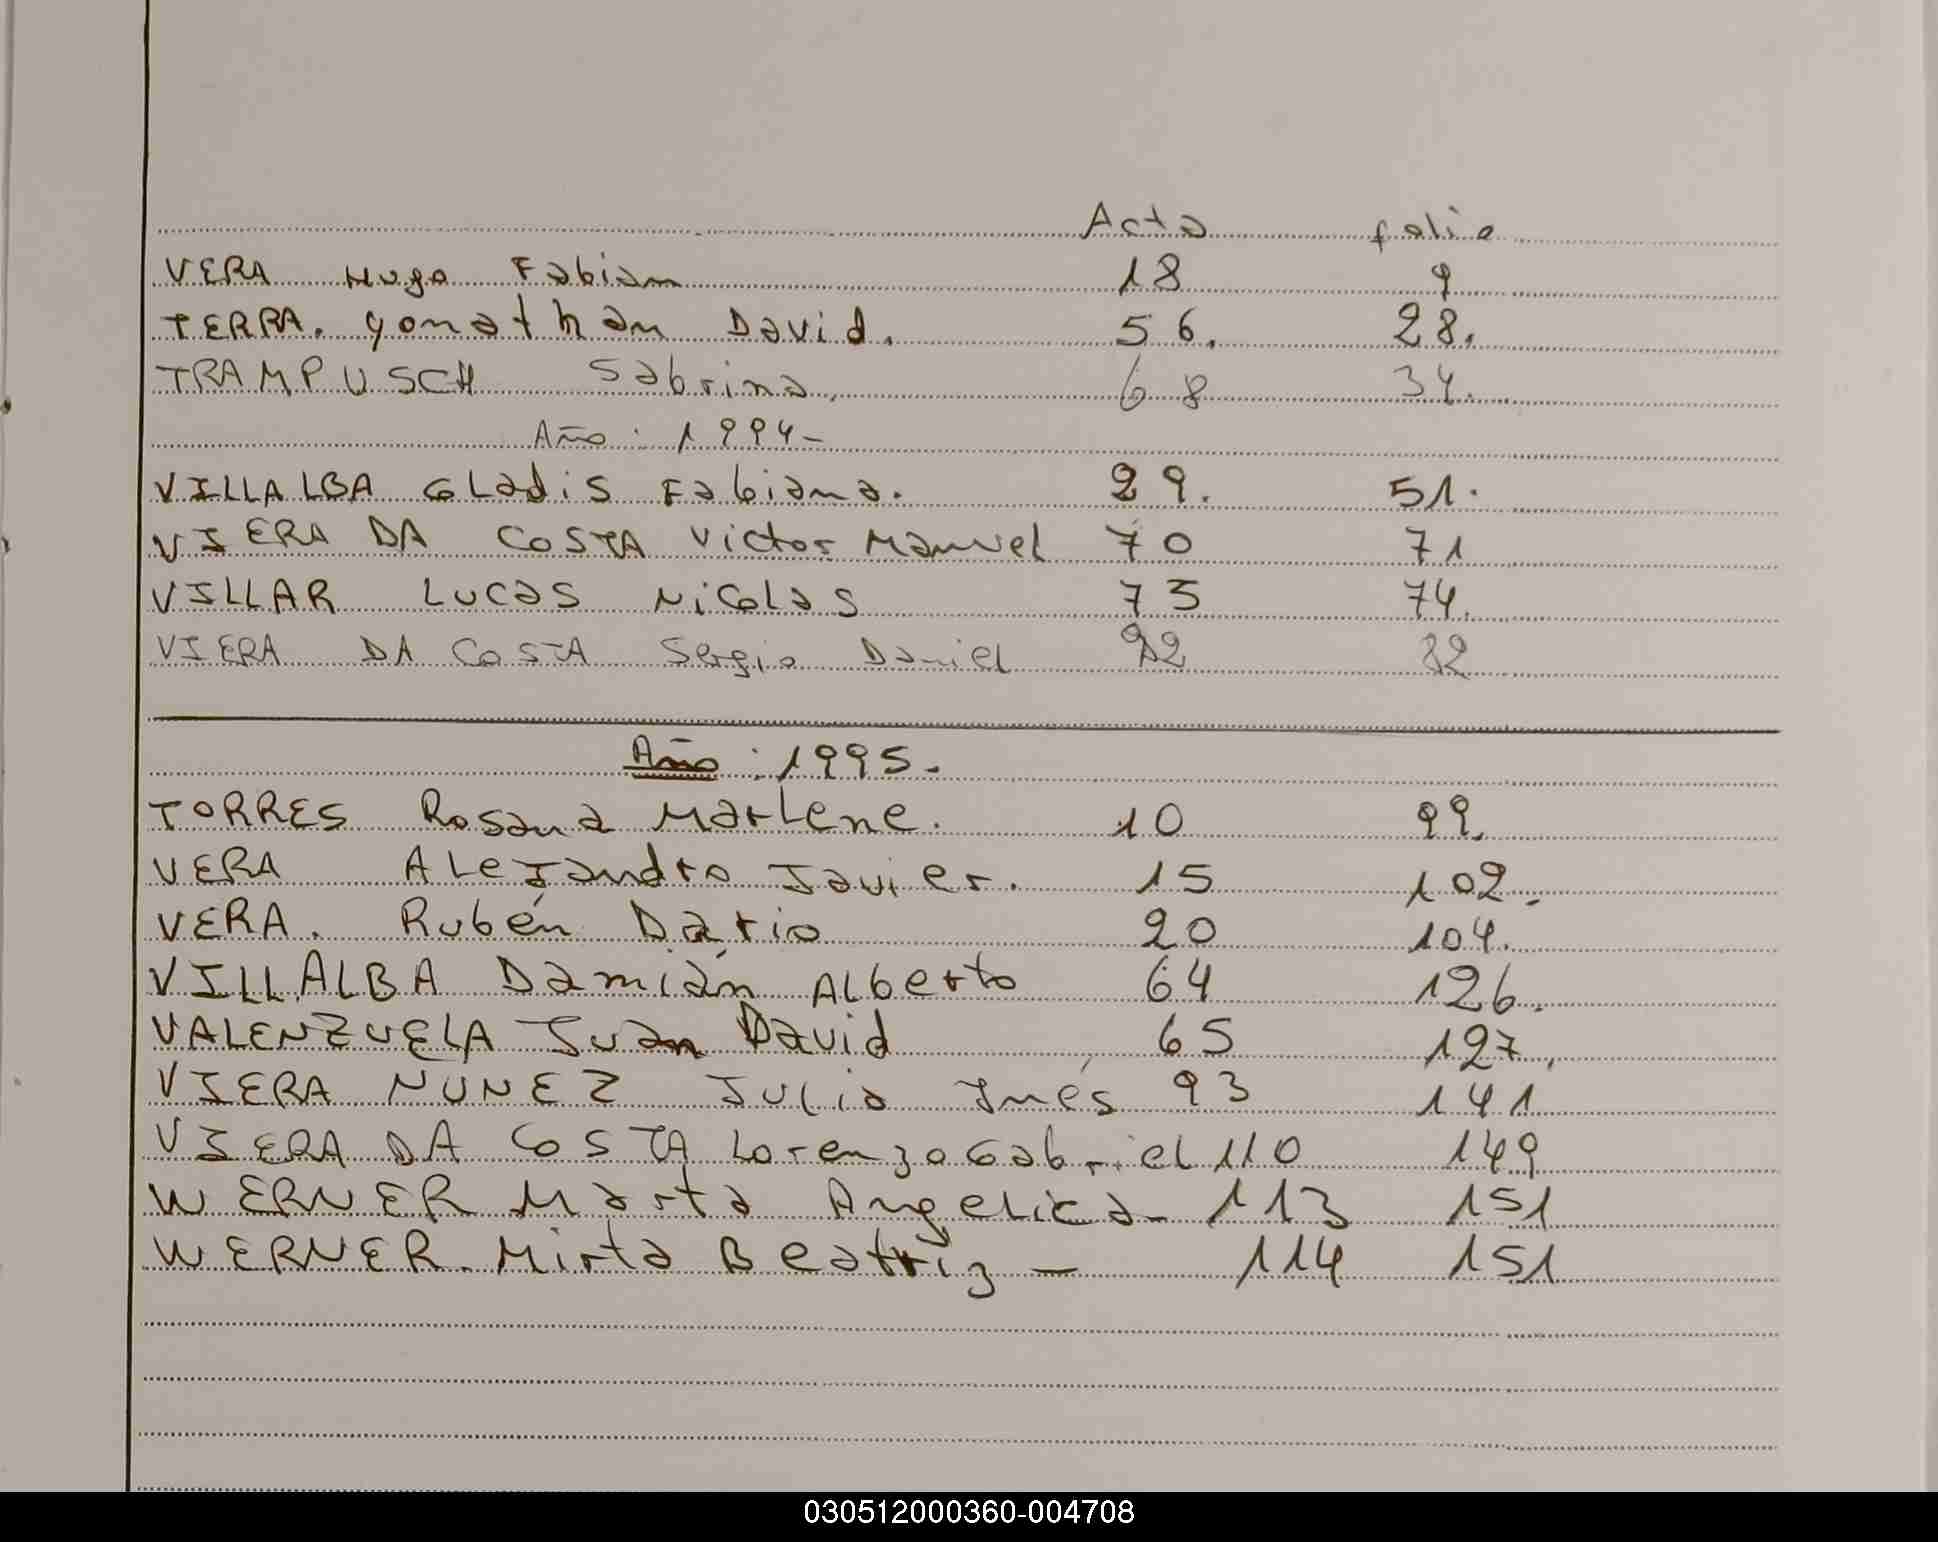 Acta folio
VERA Hugo Fabian 18 9
TERRA. Yonathan David. 56. 28.
TRAMPUSCH Sabrina. 68 34.
Año: 1994-
VILLALBA GLadis Fabiana. 29. 51.
VIERA DA COSTA Victor Manuel 70 71
VILLAR Lucas Nicolas 75 74.
VIERA DA COSTA Sergio Daniel
Año: 1995.
TORRES Rosana MarLene. 10 99.
VERA ALeJandro Javier. 15 102.
VERA. Rubén Dario 20 104.
VILLALBA Damián ALberto 64 126.
VALENZUELA Juan David 65 127.
VIERA NUNEZ Julia Inés 93 141
VIERA DA COSTA Lorenzo Gabriel 110 149
WERNER Marta Angelica- 113 151
WERNER. Mirta Beatriz - 114 151
030512000360-004708